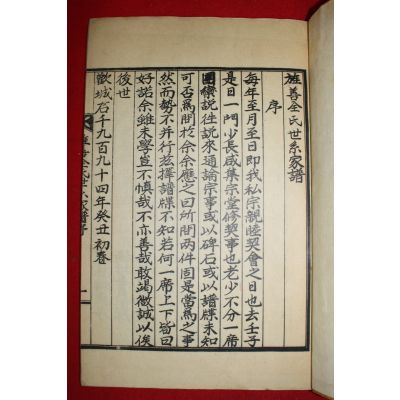 旌善全氏世系家譜
序
每年至月至日即我私宗親睦契會之日也去壬子
是日一門少長咸集宗堂修契事也老少不分一席
團欒說往說來通論宗事或以碑石或以譜牒未知
可否爲問於余余應之曰所問兩件固是當爲之事
然而勢不并行玆擇譜牒不知若何一席上下皆曰
好諾余雖未學豈不愼哉不亦善哉敢竭微誠以俟
後世
歡城石千九百九十四年癸丑初卷
旌善全氏世系家譜序
一